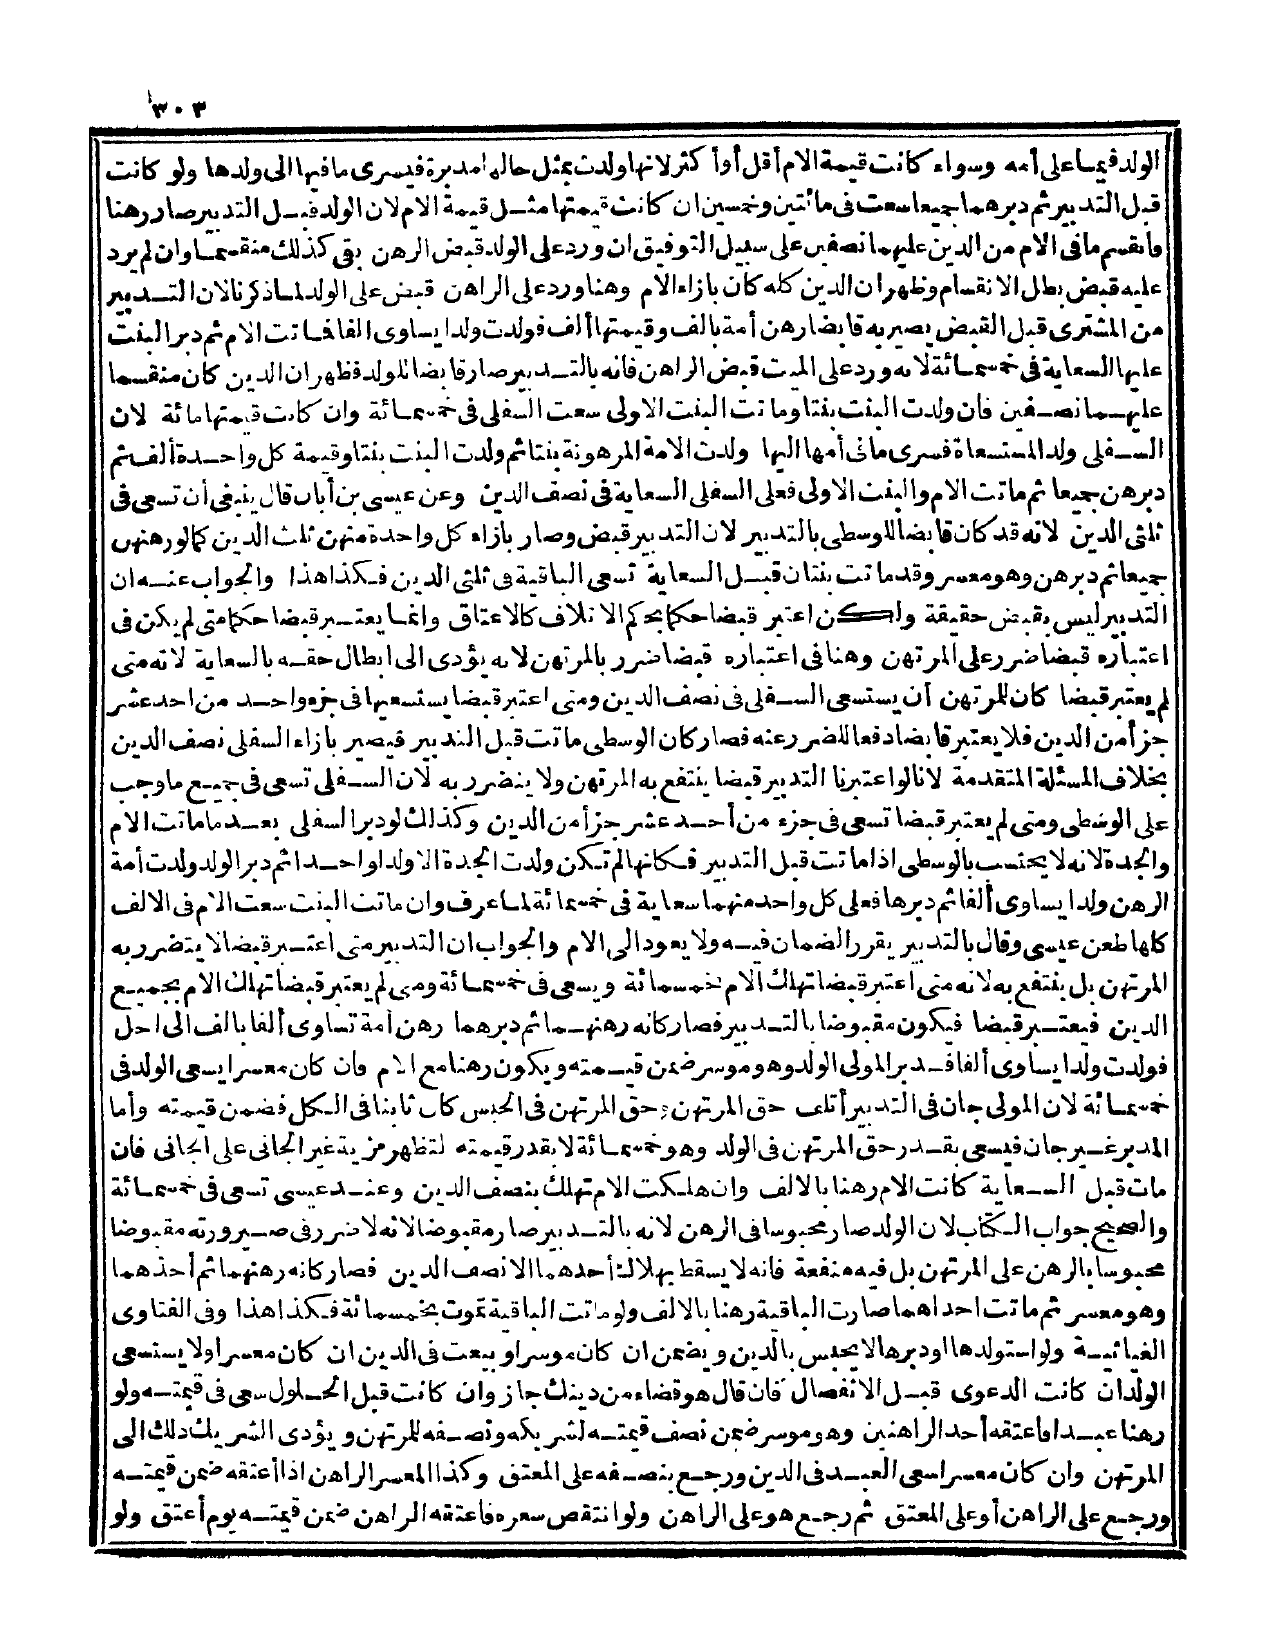 ٣٠٣
الولد فيما على أمه وسواء كانت قيمة الام أقل أو أكثر لانها ولدت بمثل حالها مدبرة فيسرى ما فيها الى ولدها ولو كانت
قبل التدبير ثم دبرهما جميعا سعت فى مائتين وخمسين ان كانت قيمتها مثل قيمة الام لان الولد قبل التدبير صار رهنا
وانقسم ما فى الام من الدين عليهما نصفين على سبيل التوفيق ان ورد على الولد قبض الرهن بقى كذلك منقسما وان لم يرد
عليه قبض بطل الانقسام وظهر ان الدين كله كان بازاء الام وهنا ورد على الراهن قبض على الولد لما ذكرنا لان التدبير
من المشترى قبل القبض يصير به قابضا رهن أمة بالف وقيمتها ألف فولدت ولدا يساوى الفا فماتت الام ثم دبر البنت
عليها السعاية فى خمسمائة لانه ورد على الميت قبض الراهن فانه بالتدبير صار قابضا للولد فظهر ان الدين كان منقسما
عليهما نصفين فان ولدت البنت بنتا وماتت البنت الاولى سعت السفلى فى خمسمائة وان كانت قيمتها مائة لان
السفلى ولد المستسعاة فسرى مافى أمها اليها ولدت الامة المرهونة بنتا ثم ولدت البنت بنتا وقيمة كل واحدة ألف ثم
دبرهن جميعا ثم ماتت الام والبنت الاولى فعلى السفلى السعاية فى نصف الدين وعن عيسى بن أبان قال ينبغى أن تسعى فى
ثلثى الدين لانه قد كان قابضا للوسطى بالتدبير لان التدبير قبض وصار بازاء كل واحدة منهن ثلث الدين كما لو رهنهن
جميعا ثم دبرهن وهو معسر وقد ماتت بنتان قبل السعاية تسعى الباقية فى ثلثى الدين فكذا هذا والجواب عنه ان
التدبير ليس بقبض حقيقة ولكن اعتبر قبضا حكما بحكم الاتلاف كالاعتاق وانما يعتبر قبضا حكما متى لم يكن فى
اعتباره قبضا ضرر على المرتهن وهنا فى اعتباره قبضا ضرر بالمرتهن لانه يؤدى الى ابطال حقه بالسعاية لانه متى
لم يعتبر قبضا كان للمرتهن أن يستسعى السفلى فى نصف الدين ومتى اعتبر قبضا يستسعيها فى جزء واحد من احد عشر
جزأ من الدين فلا يعتبر قابضا دفعا للضرر عنه فصار كان الوسطى ماتت قبل التدبير فيصير بازاء السفلى نصف الدين
بخلاف المسئلة المتقدمة لانا لو اعتبرنا التدبير قبضا ينتفع به المرتهن ولا يتضرر به لان السفلى تسعى فى جميع ما وجب
على الوسطى ومتى لم يعتبر قبضا تسعى فى جزء من أحد عشر جزأ من الدين وكذلك لو دبر السفلى بعد ما ماتت الام
والجدة لانه لا يحتسب بالوسطى اذا ماتت قبل التدبير فكانها لم تكن ولدت الجدة الا ولدا واحدا ثم دبر الولد ولدت أمة
الرهن ولدا يساوى ألفا ثم دبرها فعلى كل واحد منهما سعاية فى خمسمائة لما عرف وان ماتت البنت سعت الام فى الالف
كلها طعن عيسى وقال بالتدبير يقرر الضمان فيه ولا يعود الى الام والجواب ان التدبير متى اعتبر قبضا لا يتضرر به
المرتهن بل ينتفع به لانه متى اعتبر قبضا تهلك الام بخمسمائة ويسعى فى خمسمائة ومتى لم يعتبر قبضا تهلك الام بجميع
الدين فيعتبر قبضا فيكون مقبوضا بالتدبير فصار كانه رهنهما ثم دبرهما رهن أمة تساوى ألفا بالف الى اجل
فولدت ولدا يساوى ألفا فدبر المولى الولد وهو موسر ضمن قيمته ويكون رهنا مع الام فان كان معسرا يسعى الولد فى
خمسمائة لان المولى جان فى التدبير أتلف حق المرتهن وحق المرتهن فى الحبس كان ثابتا فى الكل فضمن قيمته وأما
المدبر غير جان فيسعى بقدر حق المرتهن فى الولد وهو خمسمائة لا بقدر قيمته لتظهر مزية غير الجانى على الجانى فان
مات قبل السعاية كانت الام رهنا بالالف وان هلكت الام تهلك بنصف الدين وعند عيسى تسعى فى خمسمائة
والصحيح جواب الكتاب لان الولد صار محبوسا فى الرهن لانه بالتدبير صار مقبوضا لانه لا ضرر فى صيرورته مقبوضا
محبوسا بالرهن على المرتهن بل فيه منفعة فانه لا يسقط بهلاك أحدهما الا نصف الدين فصار كانه رهنهما ثم أحدهما
وهو معسر ثم ماتت احداهما صارت الباقية رهنا بالالف ولو ماتت الباقية تموت بخمسمائة فكذا هذا وفى الفتاوى
الغياثية ولو استولدها او دبرها لا يحبس بالدين ويضمن ان كان موسرا ويبعت فى الدين ان كان معسرا ولا يستسعى
الولد ان كانت الدعوى قبل الانفصال فان قال هو قضاء من دينك جاز وان كانت قبل الحلول سعى فى قيمته ولو
رهنا عبدا فاعتقه أحد الراهنين وهو موسر ضمن نصف قيمته لشريكه ونصفه للمرتهن ويؤدى الشريك ذلك الى
المرتهن وان كان معسرا سعى العبد فى الدين ورجع بنصفه على المعتق وكذا المعسر الراهن اذا أعتقه ضمن قيمته
ورجع على الراهن أو على المعتق ثم رجع هو على الراهن ولو انتقص سعره فاعتقه الراهن ضمن قيمته يوم أعتق ولو